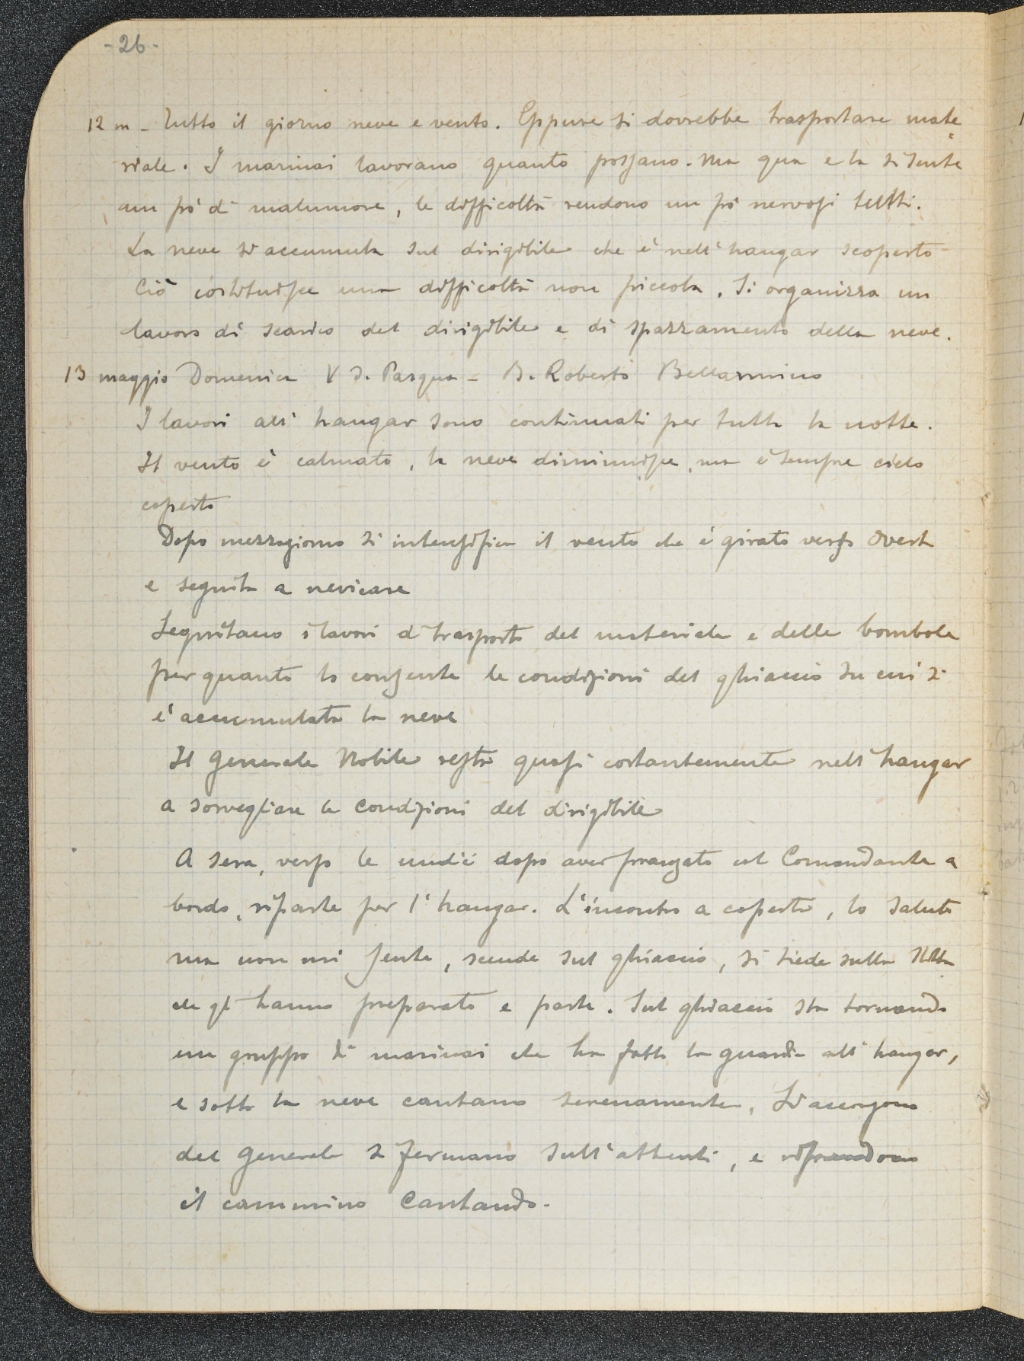 -26-
12 m - Tutto il giorno neve e vento. Eppure si dovrebbe trasportare mate
riale. I marinai lavorano quanto possano. Ma qua e la si sente
un pò di malumore, le difficoltà rendono un pò nervosi tutti.
La neve si accumula sul dirigibile che è nell'hangar scoperto
Ciò costituisce una difficoltà non piccola. Si organizza un
lavoro di scarico del dirigibile e di spazzamento della neve.
13 maggio Domenica V d. Pasqua - B. Roberto Bellarmino
I lavori all'hangar sono continuati per tutta la notte.
Il vento è calmato, la neve diminuisce, ma è sempre cielo
coperto
Dopo mezzogiorno si intensifica il vento che è girato verso Ovest
e seguita a nevicare
Seguitano i lavori di trasporto del materiale e delle bombole
per quanto lo consente le condizioni del ghiaccio su cui si
è accumulata la neve
Il Generale Nobile resta quasi costantemente nell'hangar
a sorvegliare le condizioni del dirigibile
A sera, verso le undici dopo aver pranzato col Comandante a
bordo, riparte per l'hangar. L'incontro a coperta, lo saluto
ma non mi sente, scende sul ghiaccio, si siede sulla slitta
che gli hanno preparato e parte. Sul ghiaccio sta tornando
un gruppo di marinai che ha fatto la guardia all'hangar,
e sotto la neve cantano serenamente. Si accorgono
del generale si fermano sull'attenti, e riprendono
il cammino cantando.